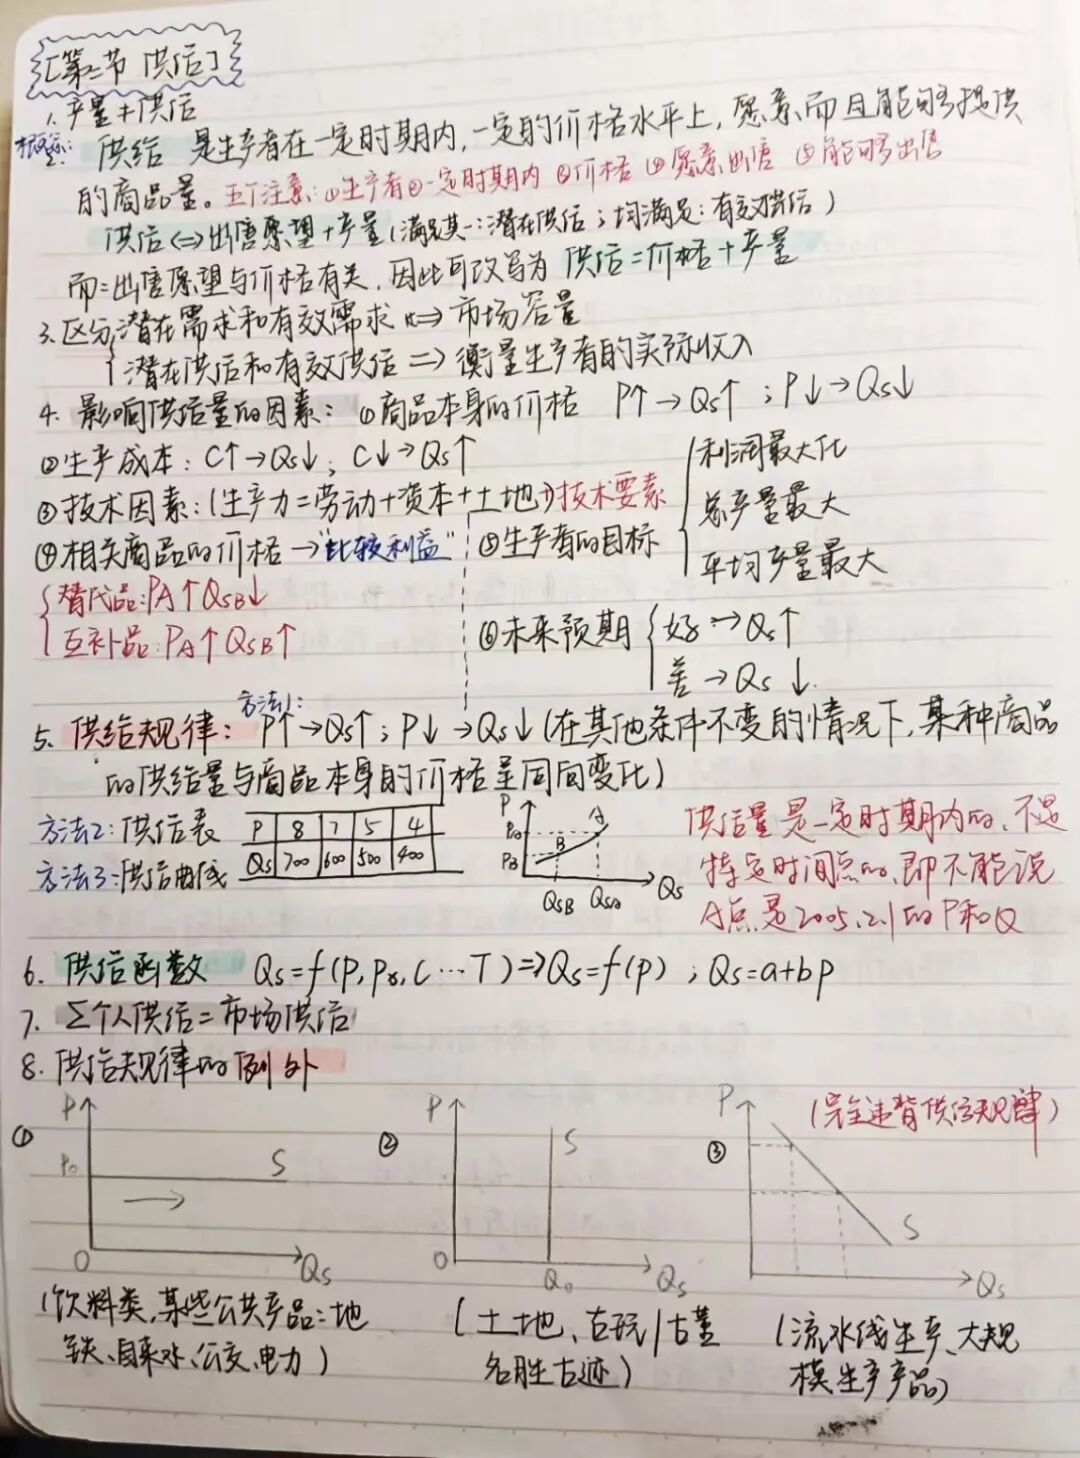 [第二节 供给]
1. 产量≠供给
概念: 供给 是生产者在一定时期内,一定的价格水平上,愿意而且能够提供
的商品量。五个注意:①生产者②一定时期内③价格④愿意出售⑤能够出售
供给⇔出售愿望+产量(满足其一:潜在供给;均满足:有效供给)
而:出售愿望与价格有关,因此可改写为 供给=价格+产量
3.区分{潜在需求和有效需求⇒市场容量
潜在供给和有效供给⇒衡量生产者的实际收入
4. 影响供给量的因素: ①商品本身的价格 P↑→Qs↑;P↓→Qs↓
②生产成本:C↑→Qs↓;C↓→Qs↑
③技术因素:(生产力=劳动+资本+土地+)技术要素
④相关商品的价格→"比较利益"
{替代品:PA↑QSB↓
互补品:PA↑QSB↑
⑤生产者的目标{利润最大化
总产量最大
平均产量最大
⑥未来预期{好→Qs↑
差→Qs↓.
5. 供给规律: 方法1: P↑→Qs↑;P↓→Qs↓(在其他条件不变的情况下,某种商品
的供给量与商品本身的价格呈同向变化)
方法2:供给表 P 8 7 5 4
Qs 700 600 500 400
方法3:供给曲线
P A B PB QSB Qs
供给量是一定时期内的,不是
特定时间点的,即不能说
A点是2005.2.1的P和Q
6. 供给函数 Qs=f(P,P,C…T)⇒Qs=f(P);Qs=a+bP
7. Σ个人供给=市场供给
8. 供给规律的例外
① P P₀ S O Qs
(饮料类,某些公共产品:地
铁、自来水、公交、电力)
② P S O Q₀ Qs
(土地、古玩/古董
名胜古迹)
③ P (完全违背供给规律) S Qs
(流水线生产、大规
模生产产品)